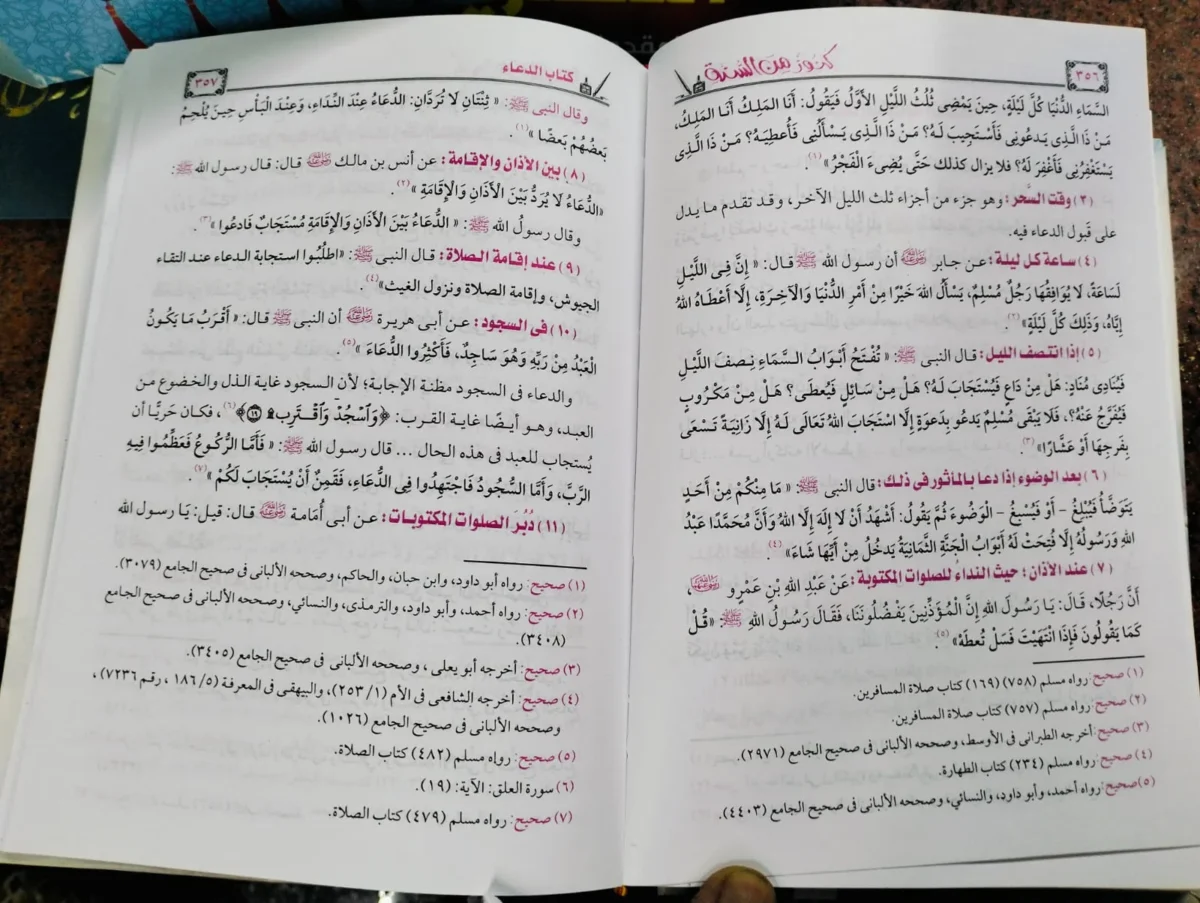 ٣٥٦
كنوز من السنة
السَّمَاءِ الدُّنْيَا كُلَّ لَيْلَةٍ، حِينَ يَمْضِى ثُلُثُ اللَّيْلِ الأَوَّلُ فَيَقُولُ: أَنَا المَلِكُ أَنَا المَلِكُ،
مَنْ ذَا الَّذِى يَدعُونِى فَأَسْتَجِيبَ لَهُ؟ مَنْ ذَا الَّذِى يَسْأَلُنِى فَأُعطِيَهُ؟ مَنْ ذَا الَّذِى
يَسْتَغْفِرُنِى فَأَغْفِرَ لَهُ؟ فلا يزال كذلك حَتَّى يُضِىءَ الْفَجْرُ»(١).
(٣) وقت السَّحر: وهو جزء من أجزاء ثلث الليل الآخر، وقد تقدم ما يدل
على قَبول الدعاء فيه.
(٤) ساعة كل ليلة: عن جابر رضي الله عنه أن رسول الله ﷺ قال: « إِنَّ فِى اللَّيْلِ
لَسَاعَةً، لَا يُوَافِقُهَا رَجُلٌ مُسْلِمٌ، يَسْأَلُ اللهَ خَيْرًا مِنْ أَمْرِ الدُّنْيَا وَالآخِرَةِ، إِلَّا أَعْطَاهُ اللهُ
إِيَّاهُ، وَذَلِكَ كُلَّ لَيْلَةٍ»(٢).
(٥) إذا انتصف الليل: قال النبى ﷺ: « تُفْتَحُ أَبْوَابُ السَّمَاءِ نِصفَ اللَّيْلِ
فَيُنَادِى مُنَادٍ: هَلْ مِنْ دَاعٍ فَيُسْتَجَابَ لَهُ؟ هَلْ مِنْ سَائِلٍ فَيُعطَى؟ هَلْ مِنْ مَكْرُوبٍ
فَيُفْرَّجَ عَنْهُ؟، فَلَا يَبْقَى مُسْلِمٌ يَدعُو بِدَعوَةٍ إِلَّا اسْتَجَابَ اللهُ تَعَالَى لَهُ إِلَّا زَانِيَةً تَسْعَى
بِفَرجِهَا أَوْ عَشَّارًا»(٣).
(٦) بعد الوضوء إذا دعا بالمأثور فى ذلك: قال النبى ﷺ: « مَا مِنْكُمْ مِنْ أَحَدٍ
يَتَوَضَّأُ فَيُبْلِغُ – أَوْ فَيُسْبِغُ – الْوَضُوءَ ثُمَّ يَقُولُ: أَشْهَدُ أَنْ لَا إِلَهَ إِلَّا اللهُ وَأَنَّ مُحَمَّدًا عَبْدُ
اللهِ وَرَسُولُهُ إِلَّا فُتِحَتْ لَهُ أَبْوَابُ الْجَنَّةِ الثَّمَانِيَةُ يَدخُلُ مِنْ أَيِّهَا شَاءَ»(٤).
(٧) عند الأذان؛ حيث النداء للصلوات المكتوبة: عَنْ عَبْدِ اللهِ بْنِ عَمْرٍو رضي الله عنهما،
أَنَّ رَجُلًا، قَالَ: يَا رَسُولَ اللهِ إِنَّ الْمُؤَذِّنِينَ يَفْضُلُونَنَا، فَقَالَ رَسُولُ اللهِ ﷺ: «قُلْ
كَمَا يَقُولُونَ فَإِذَا انْتَهَيْتَ فَسَلْ تُعطَهْ»(٥).
(١) صحيح: رواه مسلم (٧٥٨) (١٦٩) كتاب صلاة المسافرين.
(٢) صحيح: رواه مسلم (٧٥٧) كتاب صلاة المسافرين.
(٣) صحيح: أخرجه الطبرانى فى الأوسط، وصححه الألبانى فى صحيح الجامع (٢٩٧١).
(٤) صحيح: رواه مسلم (٢٣٤) كتاب الطهارة.
(٥) صحيح: رواه أحمد، وأبو داود، والنسائي، وصححه الألبانى فى صحيح الجامع (٤٤٠٣).
كتاب الدعاء
٣٥٧
وقال النبى ﷺ: « ثِنْتَانِ لَا تُرَدَّانِ: الدُّعَاءُ عِنْدَ النِّدَاءِ، وَعِنْدَ الْبَأْسِ حِينَ يُلْحِمُ
بَعضُهُمْ بَعضًا »(١).
(٨) بين الأذان والإقامة: عن أنس بن مالك رضي الله عنه قال: قال رسول الله ﷺ:
«الدُّعَاءُ لَا يُرَدُّ بَيْنَ الْأَذَانِ وَالْإِقَامَةِ »(٢).
وقال رسولُ الله ﷺ: « الدُّعَاءُ بَيْنَ الْأَذَانِ وَالْإِقَامَةِ مُسْتَجَابٌ فَادعُوا»(٣).
(٩) عند إقامة الصلاة: قال النبى ﷺ: «اطلُبُوا استجابة الدعاء عند التقاء
الجيوش، وإقامة الصلاة ونزول الغيث»(٤).
(١٠) فى السجود: عن أبى هريرة رضي الله عنه أن النبى ﷺ قال: « أَقْرَبُ مَا يَكُونُ
الْعَبْدُ مِنْ رَبِّهِ وَهُوَ سَاجِدٌ، فَأَكْثِرُوا الدُّعَاءَ »(٥).
والدعاء فى السجود مظنة الإجابة؛ لأن السجود غاية الذل والخضوع من
العبد، وهو أيضًا غاية القرب: ﴿وَٱسْجُدْ وَٱقْتَرِب۩ ١٩﴾(٦)، فكان حَرِيًّا أن
يُستجاب للعبد فى هذه الحال ... قال رسول الله ﷺ: « فَأَمَّا الرُّكُوعُ فَعَظِّمُوا فِيهِ
الرَّبَّ، وَأَمَّا السُّجُودُ فَاجْتَهِدُوا فِى الدُّعَاءِ، فَقَمِنٌ أَنْ يُسْتَجَابَ لَكُمْ »(٧).
(١١) دُبُرَ الصلوات المكتوبات: عن أبى أُمَامة رضي الله عنه قال: قيل: يَا رسول الله
(١) صحيح: رواه أبو داود، وابن حبان، والحاكم، وصححه الألبانى فى صحيح الجامع (٣٠٧٩).
(٢) صحيح: رواه أحمد، وأبو داود، والترمذى، والنسائي، وصححه الألبانى فى صحيح الجامع
(٣٤٠٨).
(٣) صحيح: أخرجه أبو يعلى ، وصححه الألبانى فى صحيح الجامع (٣٤٠٥).
(٤) صحيح: أخرجه الشافعى فى الأم (١/ ٢٥٣)، والبيهقى فى المعرفة (٥/ ١٨٦ ، رقم ٧٢٣٦) ،
وصححه الألبانى فى صحيح الجامع (١٠٢٦).
(٥) صحيح: رواه مسلم (٤٨٢) كتاب الصلاة.
(٦) سورة العلق: الآية: (١٩).
(٧) صحيح: رواه مسلم (٤٧٩) كتاب الصلاة.